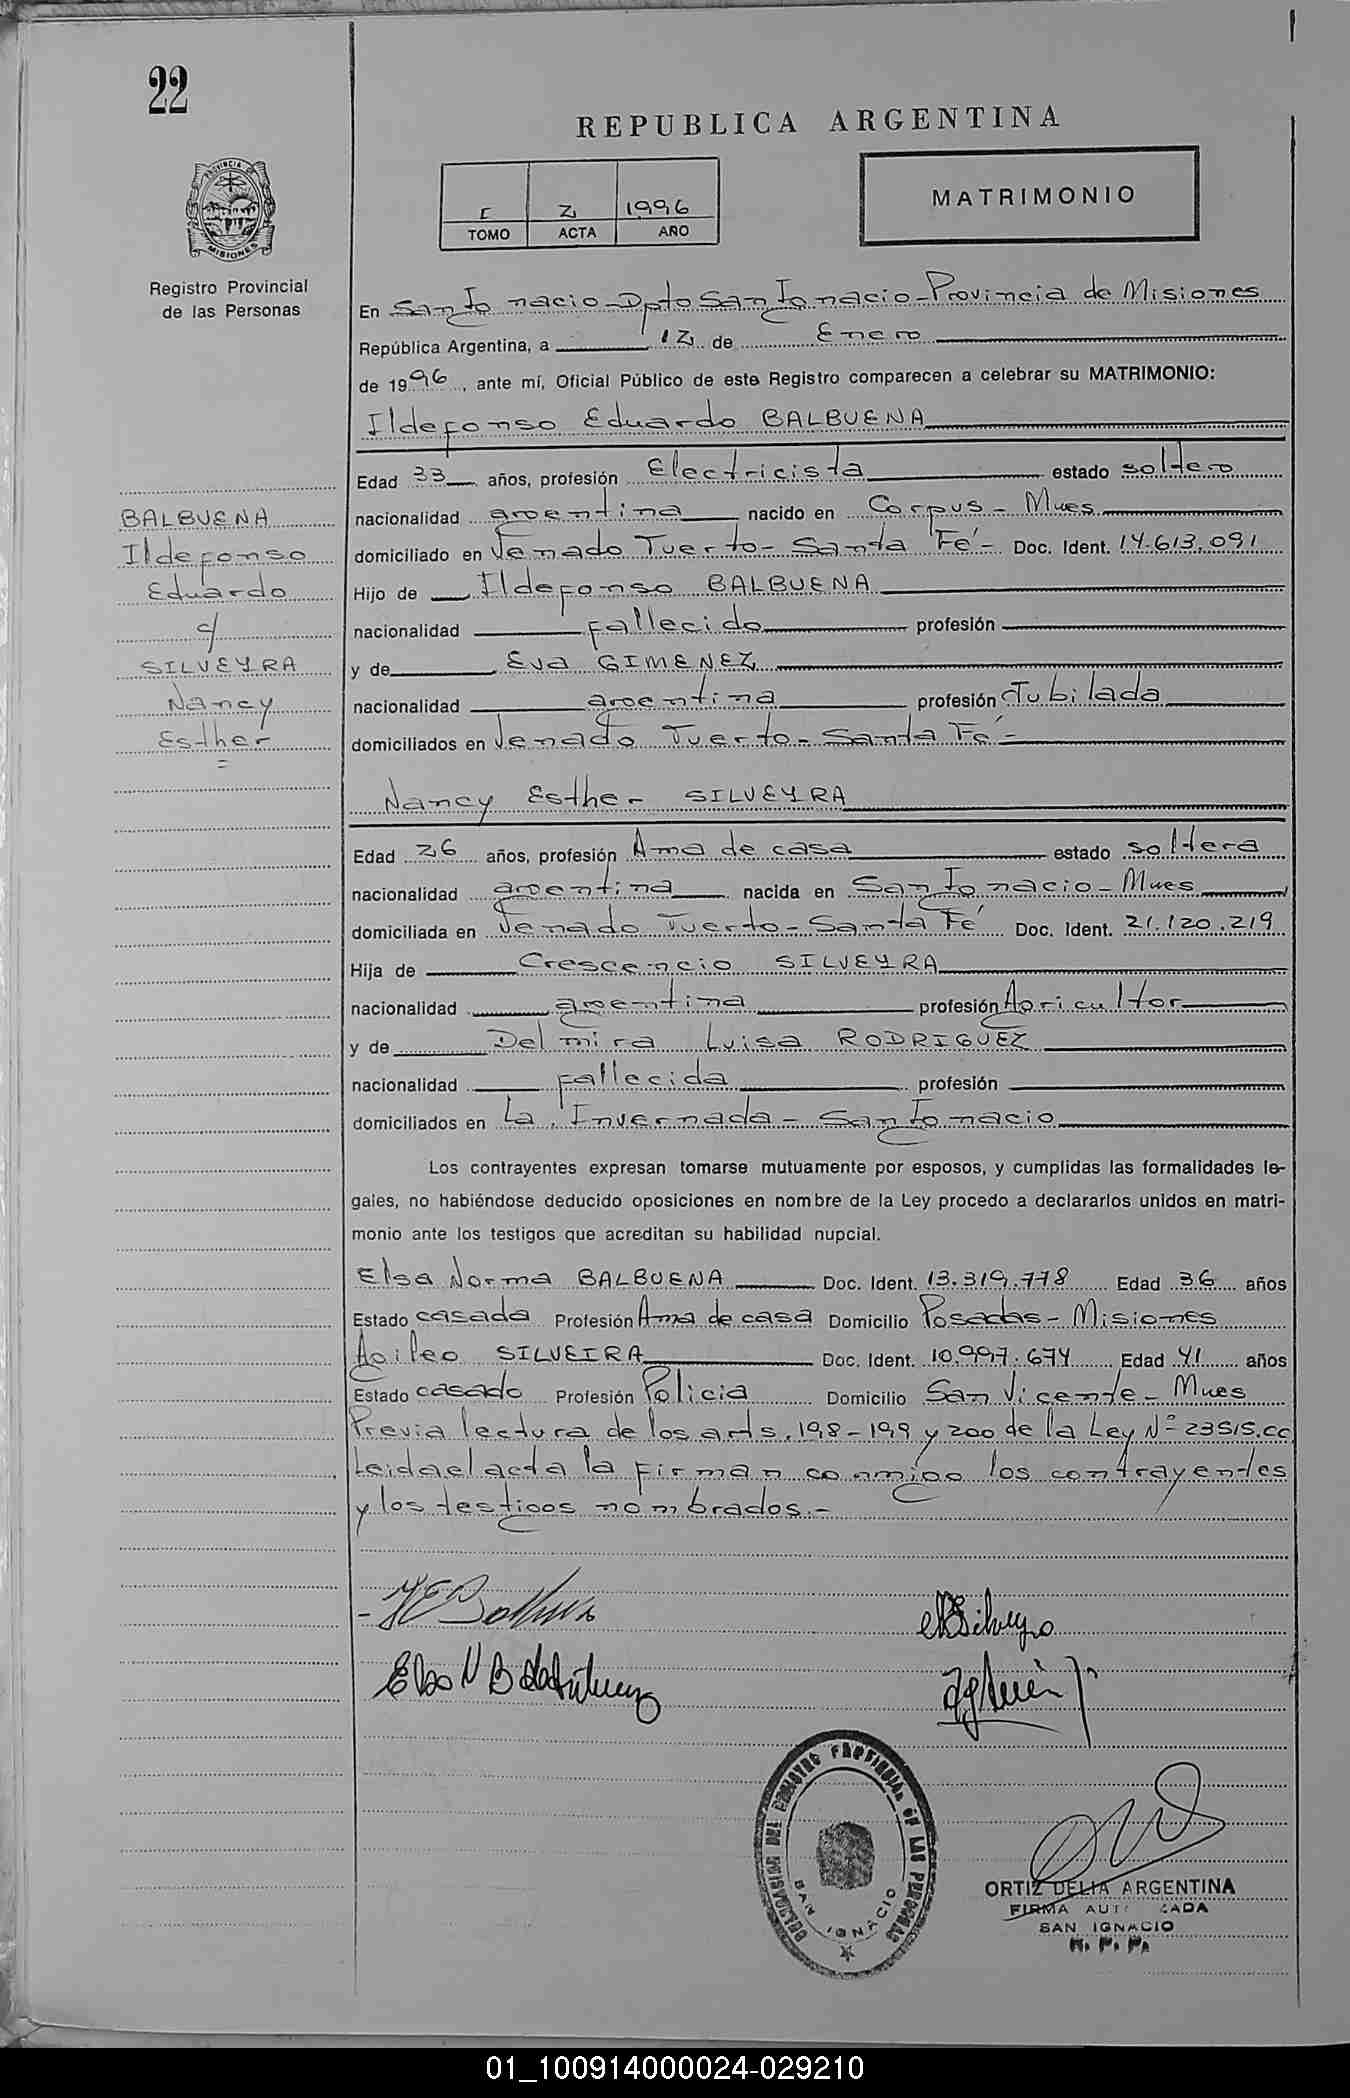 22
REPUBLICA ARGENTINA
PROVINCIA DE
MISIONES
Registro Provincial
de las Personas
I 2 1996
TOMO ACTA AÑO
MATRIMONIO
En San Ignacio - Dpto San Ignacio - Provincia de Misiones
República Argentina, a 12 de Enero
de 1996, ante mí, Oficial Público de este Registro comparecen a celebrar su MATRIMONIO:
Ildefonso Eduardo BALBUENA
Edad 33 años, profesión Electricista estado soltero
nacionalidad argentina nacido en Corpus - Mnes
domiciliado en Venado Tuerto - Santa Fé - Doc. Ident. 14.613.091
Hijo de Ildefonso BALBUENA
nacionalidad fallecido profesión
y de Eva GIMENEZ
nacionalidad argentina profesión Jubilada
domiciliados en Venado Tuerto - Santa Fé -
BALBUENA
Ildefonso
Eduardo
c/
SILVEYRA
Nancy
Esther
=
Nancy Esther SILVEYRA
Edad 26 años, profesión Ama de casa estado soltera
nacionalidad argentina nacida en San Ignacio - Mnes
domiciliada en Venado Tuerto - Santa Fé Doc. Ident. 21.120.219
Hija de Crescencio SILVEYRA
nacionalidad argentina profesión Agricultor
y de Delmira Luisa RODRIGUEZ
nacionalidad fallecida profesión
domiciliados en La Invernada - San Ignacio
Los contrayentes expresan tomarse mutuamente por esposos, y cumplidas las formalidades le-
gales, no habiéndose deducido oposiciones en nombre de la Ley procedo a declararlos unidos en matri-
monio ante los testigos que acreditan su habilidad nupcial.
Elsa Norma BALBUENA Doc. Ident. 13.319.778 Edad 36 años
Estado casada Profesión Ama de casa Domicilio Posadas - Misiones
Agileo SILVEIRA Doc. Ident. 10.997.674 Edad 41 años
Estado casado Profesión Policia Domicilio San Vicente - Mnes
Previa lectura de los arts. 198 - 199 y 200 de la Ley Nº 23515.CC
Leida el acta la firman conmigo los contrayentes
y los testigos nombrados.-
DELEGACION DEL REGISTRO PROVINCIAL DE LAS PERSONAS
SAN IGNACIO
ORTIZ DELIA ARGENTINA
FIRMA
SAN IGNACIO
R. P. P.
01_100914000024-029210